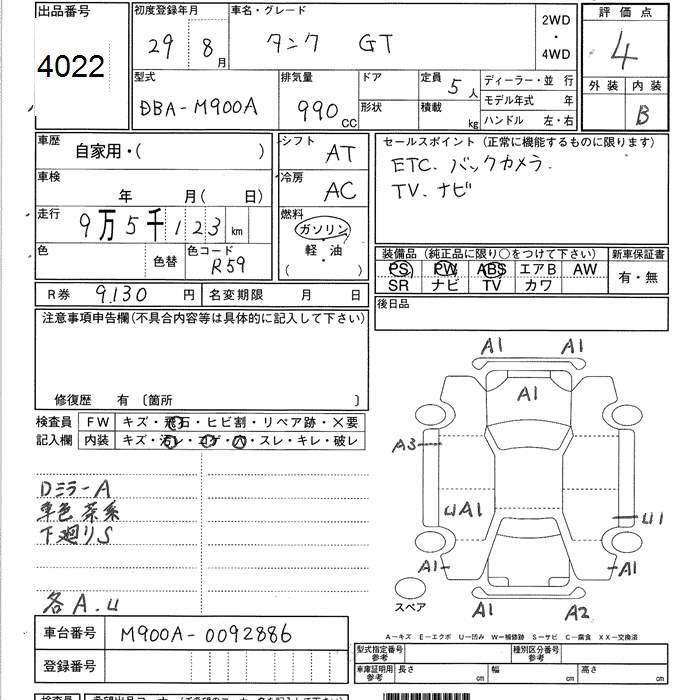 出品番号
4022
初度登録年月
29年 8月
車名・グレード
タンク GT
2WD
・
4WD
評価点
4
外装 内装
B
型式
DBA-M900A
排気量
990 CC
ドア
形状
定員 5人
積載 kg
ディーラー・並行
モデル年式 年
ハンドル 左・右
車歴
自家用・( )
車検
年 月( 日)
走行
9万5千123km
色
色替
色コード
R59
シフト
AT
冷房
AC
燃料
ガソリン
軽・油
( ・ )
セールスポイント (正常に機能するものに限ります)
ETC. バックカメラ.
TV. ナビ
装備品 (純正品に限り○をつけて下さい) 新車保証書
PS PW ABS エアB AW
SR ナビ TV カワ
有・無
R券 9.130 円
名変期限 月 日
後日品
注意事項申告欄(不具合内容等は具体的に記入して下さい)
修復歴 有 〔箇所 〕
検査員
記入欄
FW キズ・飛石・ヒビ割・リペア跡・×要
内装 キズ・汚レ・コゲ・穴・スレ・キレ・破レ
Dミラ-A
単色 茶系
下廻りS
各A.U
A1 A1
A1
A3
UA1
U1
A1 A1
A1 A2
スペア
A-キズ E-エクボ U-凹み W-補修跡 S-サビ C-腐食 XX-交換済
車台番号 M900A-0092886
登録番号
型式指定番号
参考
種別区分番号
参考
車庫証明用
参考
長さ cm 幅 cm 高さ cm